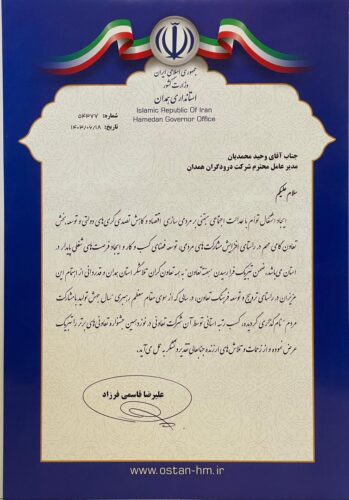 جمهوری اسلامی ایران
وزارت کشور
استانداری همدان
Islamic Republic Of Iran
Hamedan Governor Office
شماره: ۵۴۳۷۷
تاریخ: ۱۴۰۳/۰۶/۱۸
جناب آقای وحید محمدیان
مدیر عامل محترم شرکت درودگران همدان
سلام علیکم
ایجاد اشتغال توأم با عدالت اجتماعی مبتنی بر مردمی سازی اقتصاد و کاهش تصدی گری های دولتی و توسعه بخش
تعاون گامی مهم در راستای افزایش مشارکت های مردمی، توسعه فضای کسب و کار و ایجاد فرصت های شغلی پایدار در
استان می باشد. ضمن تبریک فرا رسیدن "هفته تعاون" به همه تعاون گران تلاشگر استان همدان و قدردانی از اهتمام این
عزیزان در راستای ترویج و توسعه فرهنگ تعاون، در سالی که از سوی مقام معظم رهبری "سال جهش تولید با مشارکت
مردم" نام گذاری گردیده، کسب رتبه استانی توسط آن شرکت تعاونی در نوزدهمین جشنواره تعاونی های برتر را تبریک
عرض نموده و از زحمات و تلاش های ارزنده جنابعالی تقدیر و تشکر به عمل می آید.
علیرضا قاسمی فرزاد
www.ostan-hm.ir